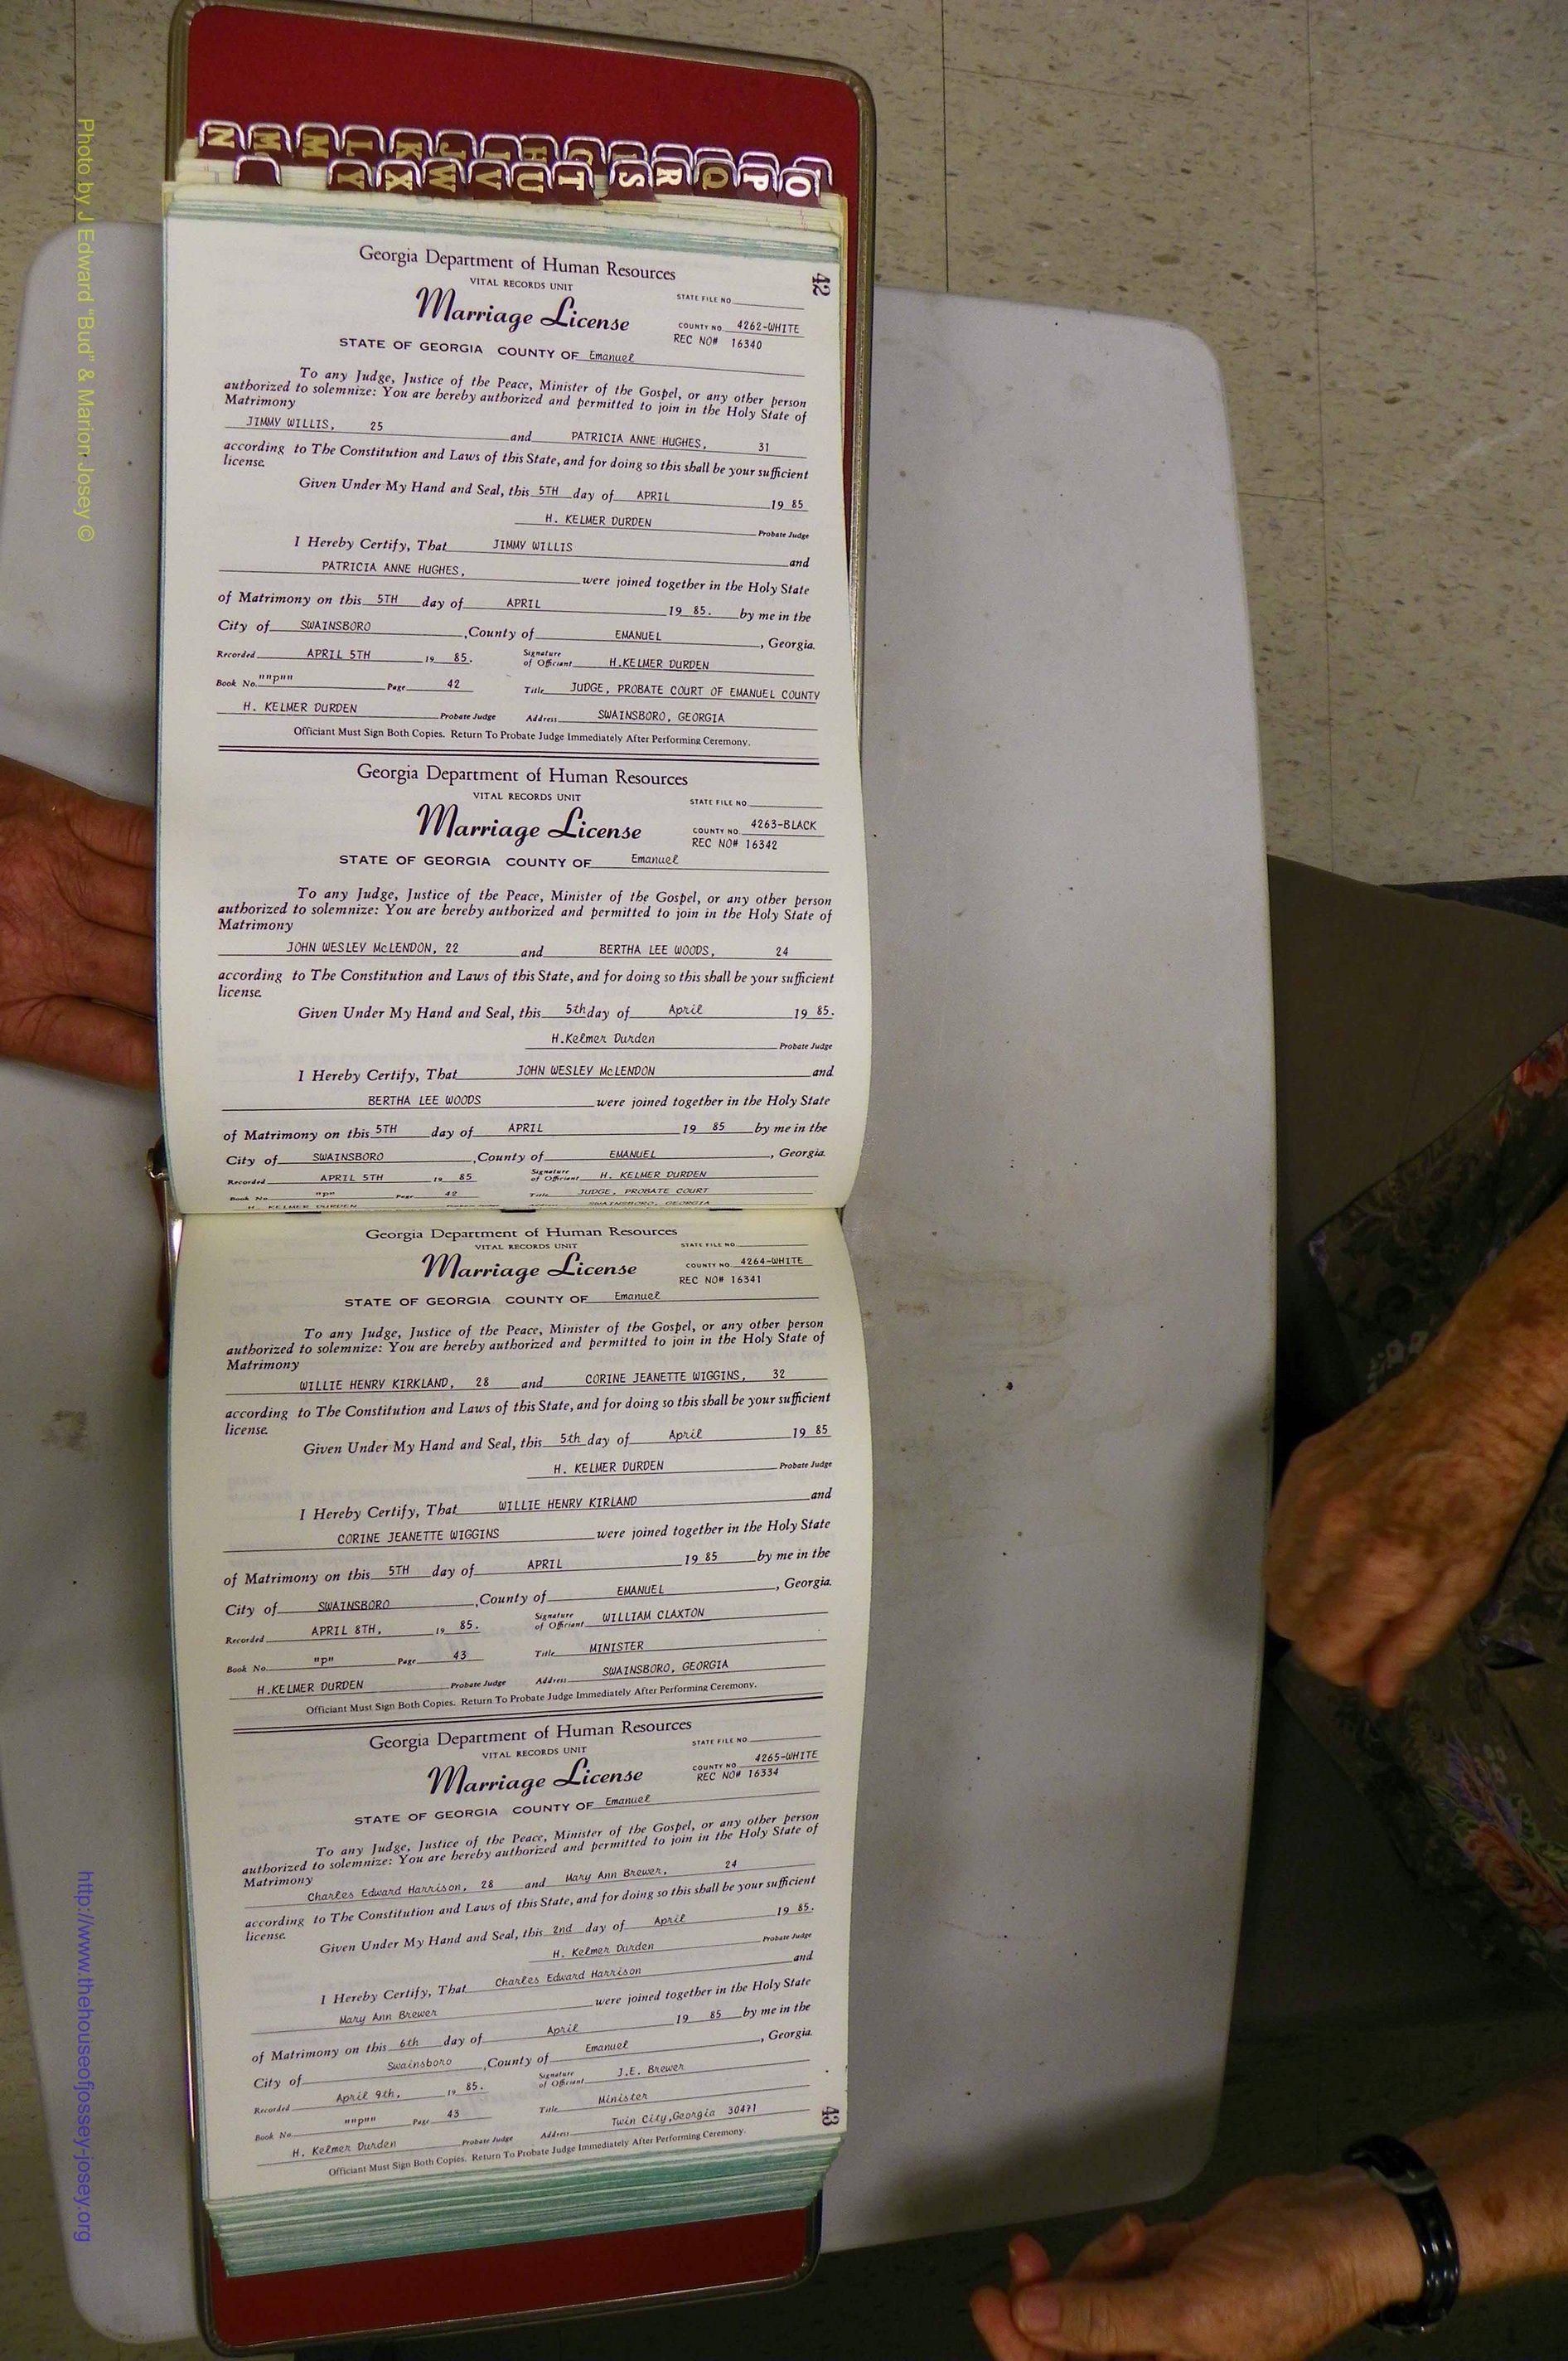 N M M L K J I H G R Q P O
Y X W V U T S R Q P O
42
Georgia Department of Human Resources
VITAL RECORDS UNIT
STATE FILE NO.
Marriage License
COUNTY NO. 4262-WHITE
REC NO# 16340
STATE OF GEORGIA COUNTY OF Emanuel
To any Judge, Justice of the Peace, Minister of the Gospel, or any other person
authorized to solemnize: You are hereby authorized and permitted to join in the Holy State of
Matrimony
JIMMY WILLIS, 25 and PATRICIA ANNE HUGHES, 31
according to The Constitution and Laws of this State, and for doing so this shall be your sufficient
license.
Given Under My Hand and Seal, this 5TH day of APRIL 19 85
H. KELMER DURDEN Probate Judge
I Hereby Certify, That JIMMY WILLIS and
PATRICIA ANNE HUGHES, were joined together in the Holy State
of Matrimony on this 5TH day of APRIL 19 85. by me in the
City of SWAINSBORO, County of EMANUEL, Georgia.
Recorded APRIL 5TH 19 85. Signature of Officiant H.KELMER DURDEN
Book No. ""p"" Page 42 Title JUDGE, PROBATE COURT OF EMANUEL COUNTY
H. KELMER DURDEN Probate Judge Address SWAINSBORO, GEORGIA
Officiant Must Sign Both Copies. Return To Probate Judge Immediately After Performing Ceremony.
Georgia Department of Human Resources
VITAL RECORDS UNIT
STATE FILE NO.
Marriage License
COUNTY NO. 4263-BLACK
REC NO# 16342
STATE OF GEORGIA COUNTY OF Emanuel
To any Judge, Justice of the Peace, Minister of the Gospel, or any other person
authorized to solemnize: You are hereby authorized and permitted to join in the Holy State of
Matrimony
JOHN WESLEY McLENDON, 22 and BERTHA LEE WOODS, 24
according to The Constitution and Laws of this State, and for doing so this shall be your sufficient
license.
Given Under My Hand and Seal, this 5th day of April 19 85.
H.Kelmer Durden Probate Judge
I Hereby Certify, That JOHN WESLEY McLENDON and
BERTHA LEE WOODS were joined together in the Holy State
of Matrimony on this 5TH day of APRIL 19 85 by me in the
City of SWAINSBORO, County of EMANUEL, Georgia.
Recorded APRIL 5TH 19 85 Signature of Officiant H. KELMER DURDEN
Book No. "p" Page 42 Title JUDGE, PROBATE COURT
H. KELMER DURDEN SWAINSBORO, GEORGIA
Georgia Department of Human Resources
VITAL RECORDS UNIT
STATE FILE NO.
Marriage License
COUNTY NO. 4264-WHITE
REC NO# 16341
STATE OF GEORGIA COUNTY OF Emanuel
To any Judge, Justice of the Peace, Minister of the Gospel, or any other person
authorized to solemnize: You are hereby authorized and permitted to join in the Holy State of
Matrimony
WILLIE HENRY KIRKLAND, 28 and CORINE JEANETTE WIGGINS, 32
according to The Constitution and Laws of this State, and for doing so this shall be your sufficient
license.
Given Under My Hand and Seal, this 5th day of April 19 85
H. KELMER DURDEN Probate Judge
I Hereby Certify, That WILLIE HENRY KIRLAND and
CORINE JEANETTE WIGGINS were joined together in the Holy State
of Matrimony on this 5TH day of APRIL 19 85 by me in the
City of SWAINSBORO, County of EMANUEL, Georgia.
Recorded APRIL 8TH, 19 85. Signature of Officiant WILLIAM CLAXTON
Book No. "p" Page 43 Title MINISTER
H.KELMER DURDEN Probate Judge Address SWAINSBORO, GEORGIA
Officiant Must Sign Both Copies. Return To Probate Judge Immediately After Performing Ceremony.
Georgia Department of Human Resources
VITAL RECORDS UNIT
STATE FILE NO.
Marriage License
COUNTY NO. 4265-WHITE
REC NO# 16334
STATE OF GEORGIA COUNTY OF Emanuel
To any Judge, Justice of the Peace, Minister of the Gospel, or any other person
authorized to solemnize: You are hereby authorized and permitted to join in the Holy State of
Matrimony
Charles Edward Harrison, 28 and Mary Ann Brewer, 24
according to The Constitution and Laws of this State, and for doing so this shall be your sufficient
license.
Given Under My Hand and Seal, this 2nd day of April 19 85.
H. Kelmer Durden Probate Judge
I Hereby Certify, That Charles Edward Harrison and
Mary Ann Brewer were joined together in the Holy State
of Matrimony on this 6th day of April 19 85 by me in the
City of Swainsboro, County of Emanuel, Georgia.
Recorded April 9th, 19 85. Signature of Officiant J.E. Brewer
Book No. ""p"" Page 43 Title Minister
H. Kelmer Durden Probate Judge Address Twin City,Georgia 30471
Officiant Must Sign Both Copies. Return To Probate Judge Immediately After Performing Ceremony.
43
Photo by J Edward "Bud" & Marion Josey ©
http://www.thehouseofjossey-josey.org